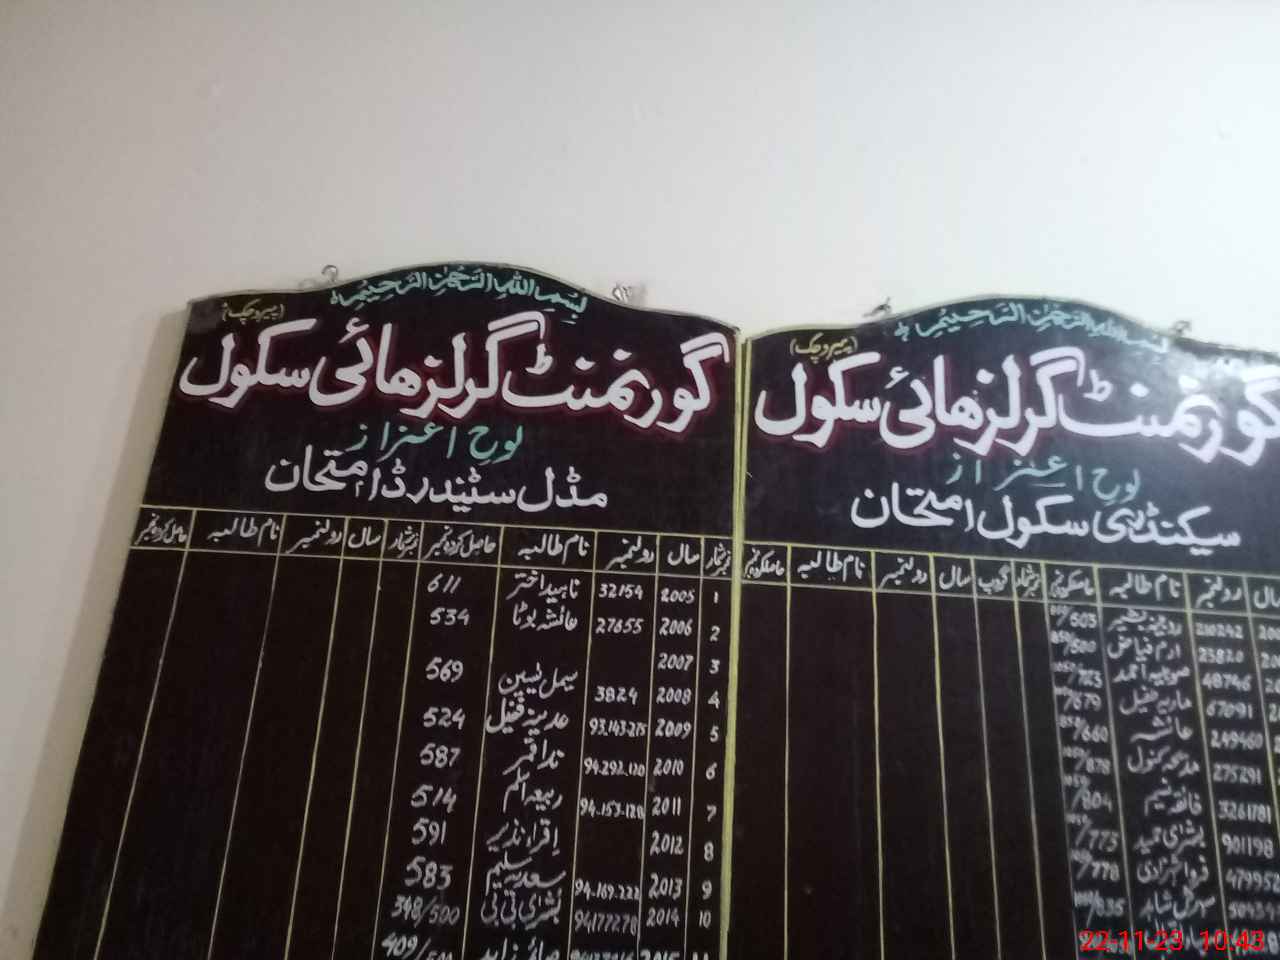 بِسْمِ اللّٰهِ الرَّحْمٰنِ الرَّحِيْمِ
(پیروچک)
گورنمنٹ گرلز ھائی سکول
لوحِ اعزاز
مڈل سٹینڈرڈ امتحان
نمبر شمار سال رولنمبر نام طالبہ حاصل کردہ نمبر نمبر شمار سال رولنمبر نام طالبہ حاصل کردہ نمبر
1 2005 32154 ناہید اختر 611
2 2006 27655 عائشہ بوٹا 534
3 2007
4 2008 3824 سیمل یٰسین 569
5 2009 93.143.275 فضیل 524
6 2010 94.292.120 ندا قمر 587
7 2011 94.153.128 ربیعہ اسلم 514
8 2012 اقراء نذیر 591
9 2013 94.169.222 سعدیہ سلیم 583
10 2014 94177278 بشریٰ بی بی 348/500
2015 409/
بِسْمِ اللّٰهِ الرَّحْمٰنِ الرَّحِيْمِ
(پیروچک)
گورنمنٹ گرلز ھائی سکول
لوحِ اعزاز
سیکنڈری سکول امتحان
سال رولنمبر نام طالبہ حاصل کردہ نمبر نمبر شمار گروپ سال رولنمبر نام طالبہ حاصل کردہ نمبر
210242 روبینہ بشیر /503
25820 ارم فیاض /500
48746 صوبیہ احمد /723
67091 ماریہ طفیل /679
249460 عائشہ /660
275291 مدیحہ کنول /878
3261781 فائقہ نسیم /804
901198 بشریٰ حمید /773
479952 شہزادی /778
50434 شاہد /835
22-11-23 10:43